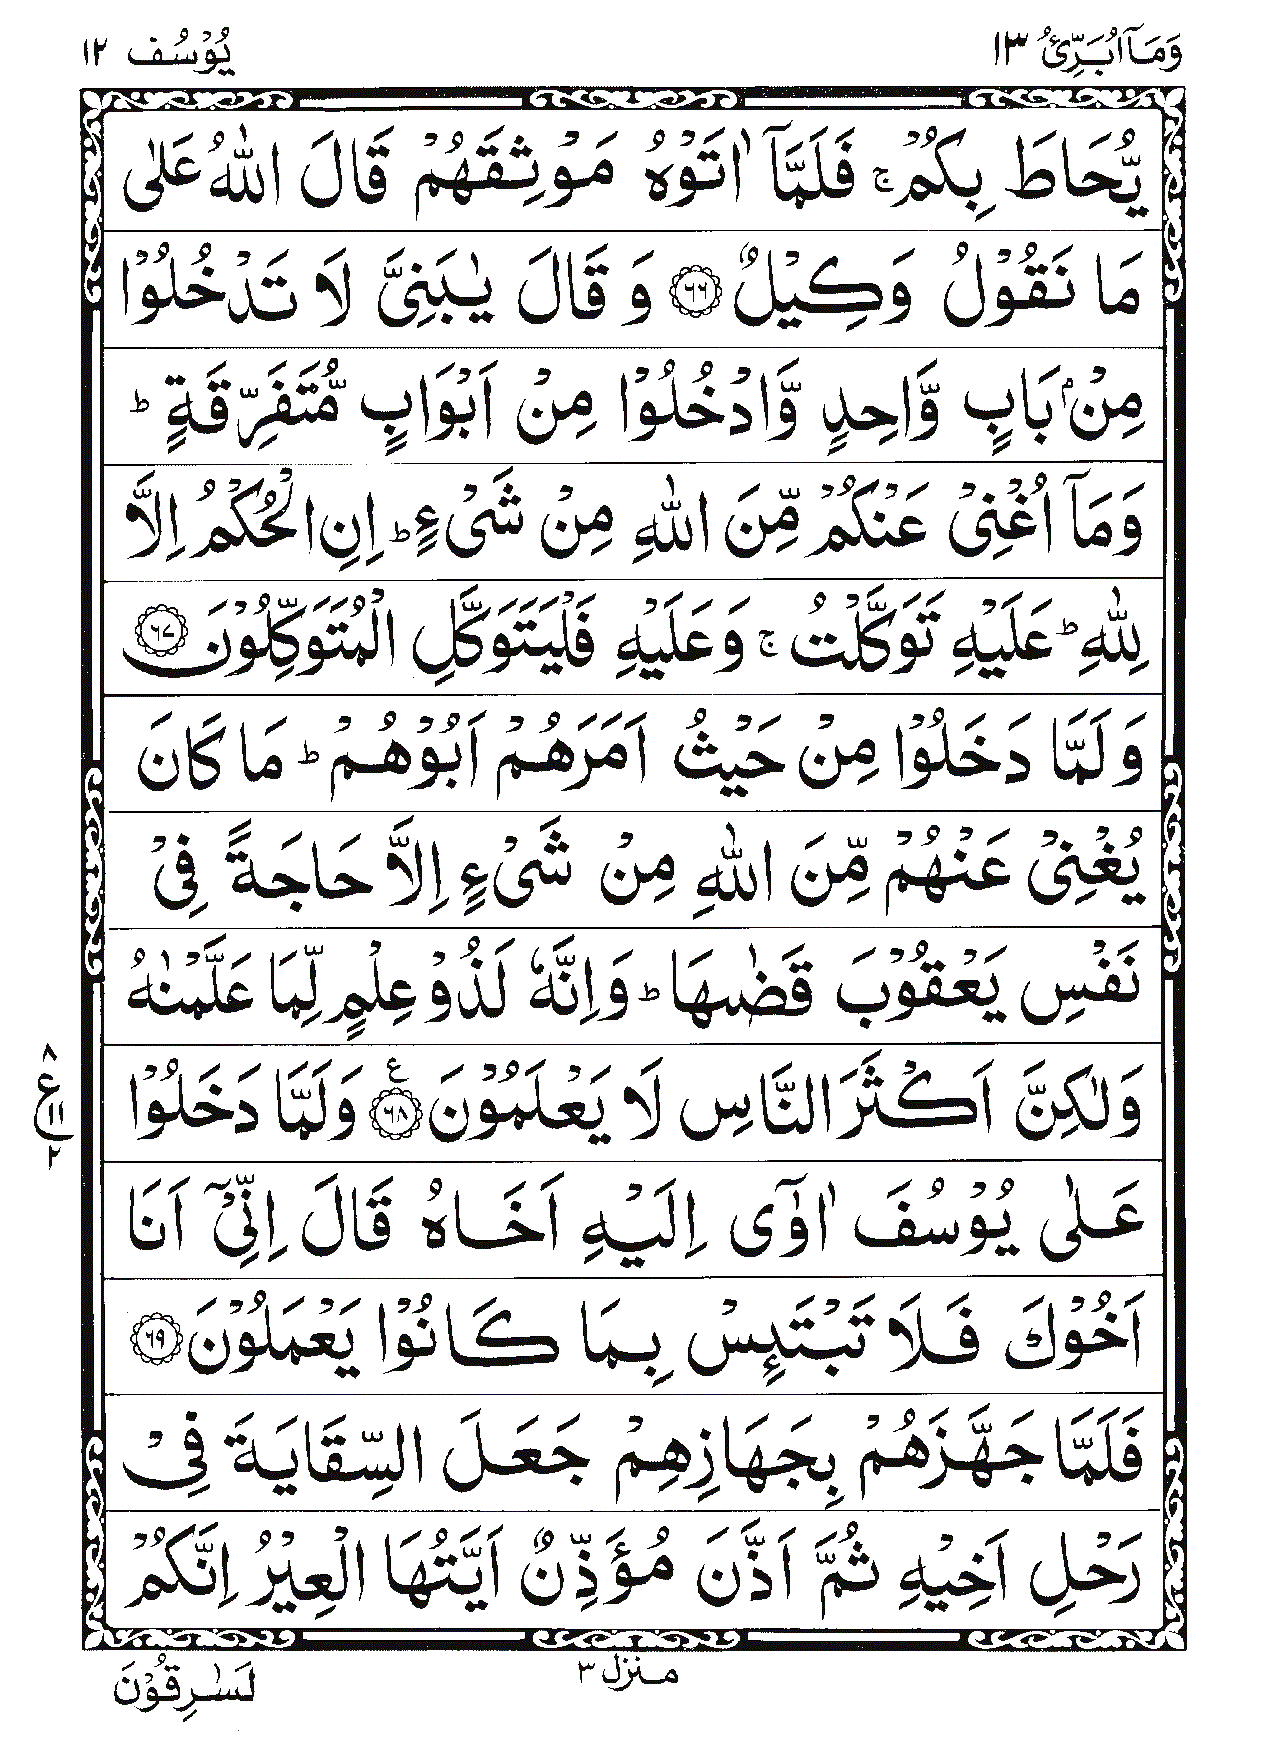 وَمَاۤ اُبَرِّئُ ١٣ یُوْسُف ١٢
یُّحَاطَ بِكُمْ ۚ فَلَمَّاۤ اٰتَوْهُ مَوْثِقَهُمْ قَالَ اللّٰهُ عَلٰی
مَا نَقُوْلُ وَكِیْلٌ ﴿٦٦﴾ وَ قَالَ یٰبَنِیَّ لَا تَدْخُلُوْا
مِنْۢ بَابٍ وَّاحِدٍ وَّادْخُلُوْا مِنْ اَبْوَابٍ مُّتَفَرِّقَةٍ ؕ
وَمَاۤ اُغْنِیْ عَنْكُمْ مِّنَ اللّٰهِ مِنْ شَیْءٍ ؕ اِنِ الْحُكْمُ اِلَّا
لِلّٰهِ ؕ عَلَیْهِ تَوَكَّلْتُ ۚ وَعَلَیْهِ فَلْیَتَوَكَّلِ الْمُتَوَكِّلُوْنَ ﴿٦٧﴾
وَلَمَّا دَخَلُوْا مِنْ حَیْثُ اَمَرَهُمْ اَبُوْهُمْ ؕ مَا كَانَ
یُغْنِیْ عَنْهُمْ مِّنَ اللّٰهِ مِنْ شَیْءٍ اِلَّا حَاجَةً فِیْ
نَفْسِ یَعْقُوْبَ قَضٰىهَا ؕ وَاِنَّهٗ لَذُوْ عِلْمٍ لِّمَا عَلَّمْنٰهُ
وَلٰكِنَّ اَكْثَرَ النَّاسِ لَا یَعْلَمُوْنَ ﴿٦٨﴾ ع وَلَمَّا دَخَلُوْا
٨
ع ١١
٢
عَلٰی یُوْسُفَ اٰوٰۤی اِلَیْهِ اَخَاهُ قَالَ اِنِّیْۤ اَنَا
اَخُوْكَ فَلَا تَبْتَىِٕسْ بِمَا كَانُوْا یَعْمَلُوْنَ ﴿٦٩﴾
فَلَمَّا جَهَّزَهُمْ بِجَهَازِهِمْ جَعَلَ السِّقَایَةَ فِیْ
رَحْلِ اَخِیْهِ ثُمَّ اَذَّنَ مُؤَذِّنٌ اَیَّتُهَا الْعِیْرُ اِنَّكُمْ
منزل ٣
لَسٰرِقُوْنَ